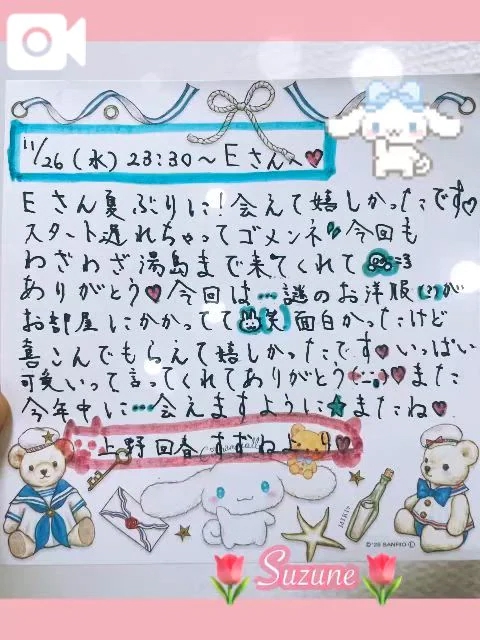 11/26(水)23:30〜Eさんへ♥
Eさん夏ぶりに!会えて嬉しかったです♡
スタート遅れちゃってゴメンネ 今回も
わざわざ湯島まで来てくれて
ありがとう♥今回は…謎のお洋服(?)が
お部屋にかかってて(笑)面白かったけど
喜こんでもらえて嬉しかったです♥いっぱい
可愛いって言ってくれてありがとう♥また
今年中に…会えますように★またね♥
上野回春 すずねより♥
©'25 SANRIO Ⓛ
Suzune